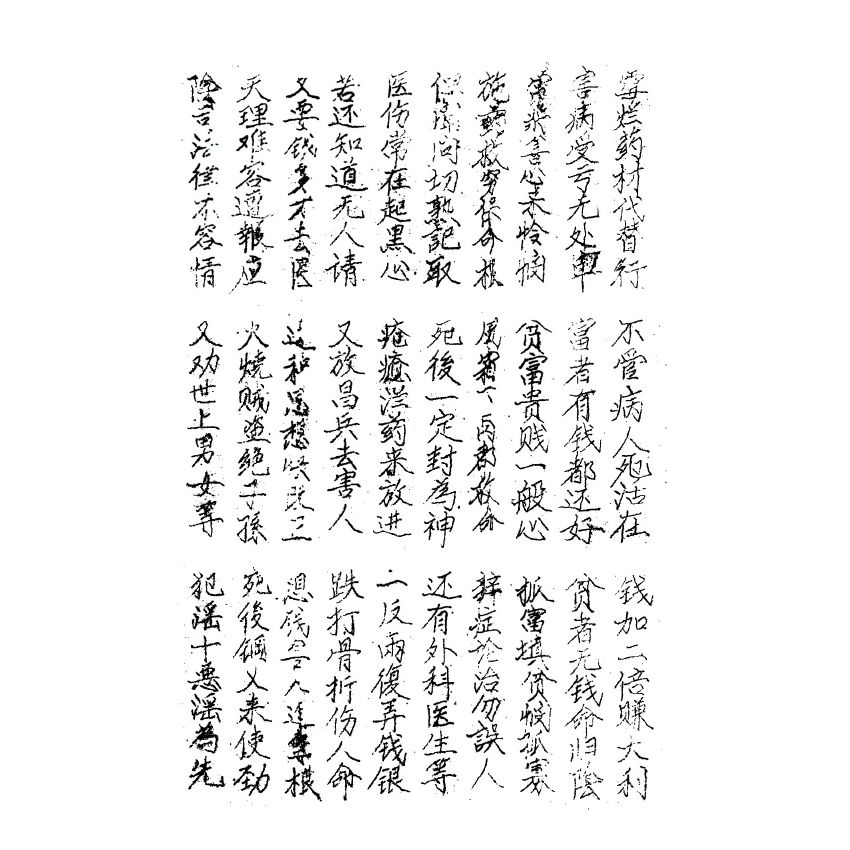 霉烂药材代替行
不管病人死活在
钱加二倍赚大利
害病受亏无处申
富者有钱都还好
贫者无钱命归阴
常行善心来怜悯
贫富贵贱一般心
抓富填贫悯孤寡
施药救穷保命根
下两郡救命
辩症论治勿误人
问切熟记取
死後一定封為神
还有外科医生等
医伤常在起黑心
疮瘡烂药来放进
一反兩復弄钱银
若还知道无人请
又放昌兵去害人
跌打骨折伤人命
又要钱多才去医
思想
想钱害人连根
天理难容遭報应
火燒贼盗绝子孫
死後鋼叉来使劲
法律不容情
又劝世上男女等
犯淫十惡淫為先